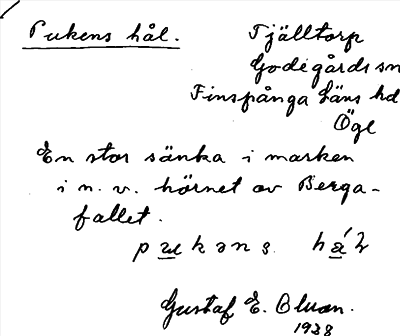 Pukens hål.
Tjälltorp
Godegårds sn
Finspånga läns hd
Ögl
En stor sänka i marken
i n. v. hörnet av Berga-
fallet.
Gustaf E.
1938